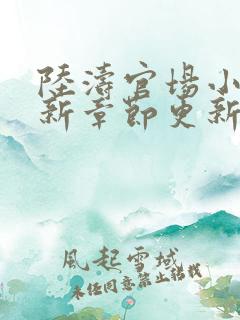 陸濤官場小
新章節更新
風起雪域
未经同意禁止转载